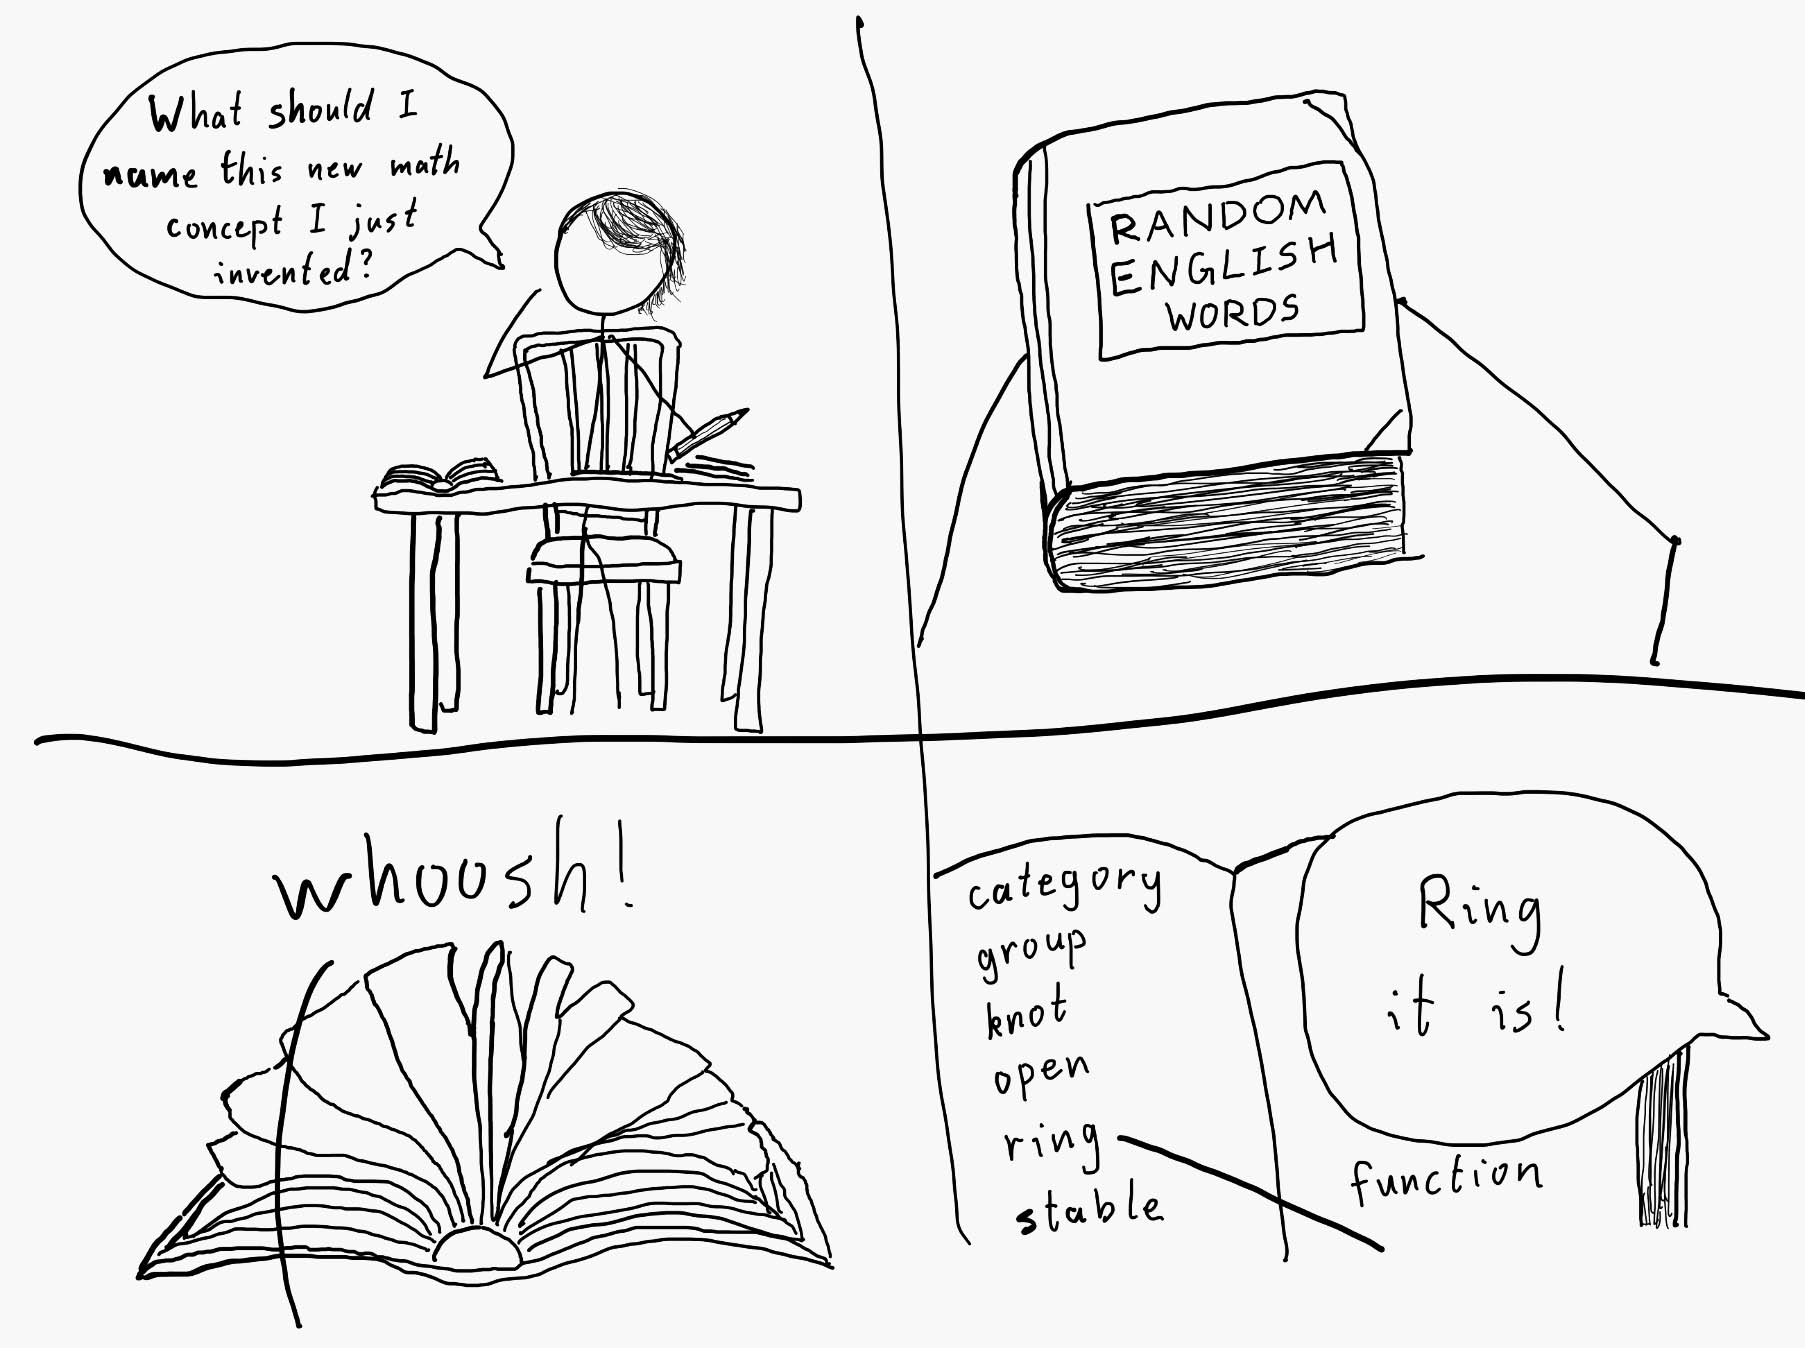 What should I
name this new math
concept I just
invented?
RANDOM
ENGLISH
WORDS
whoosh!
category
group
knot
open
ring
stable
Ring
it is!
function